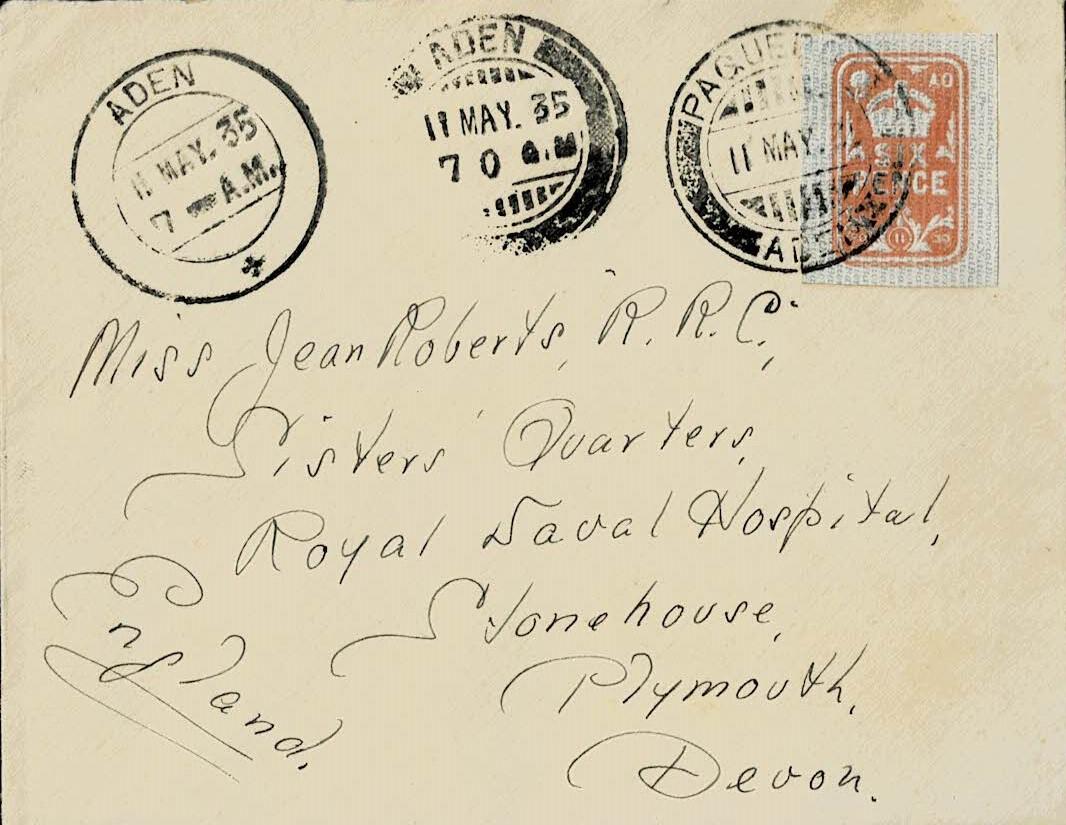 ADEN
11 MAY. 35
7 A.M.
ADEN
11 MAY. 35
7 0 A.M
PAQUEBOT
11 MAY.
ADEN
AO
SIX
PENCE
11 35
Miss Jean Roberts, R.R.C.,
Sisters' Quarters,
Royal Naval Hospital,
Stonehouse,
Plymouth,
Devon.
England.